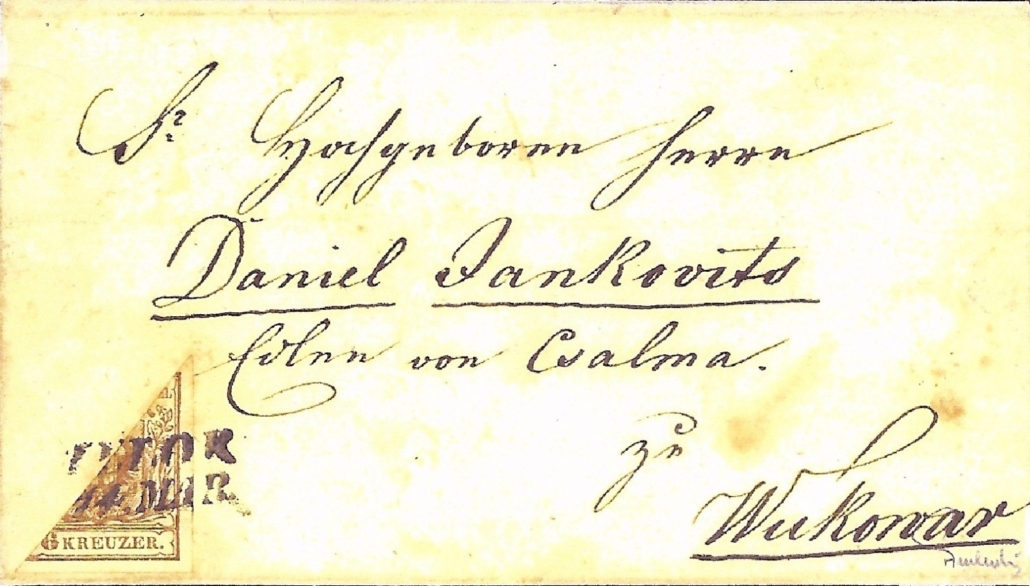 Sr Hochgeboren Herrn
Daniel Jankovits
Edlen von Csalma.
zu
Wukowar
14 MAR
6 KREUZER.